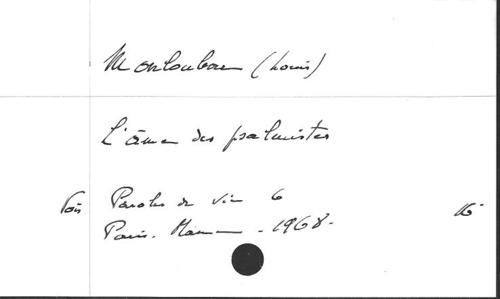 Monloubou (Louis)
L'âme des psalmistes
Paroles de vie 6
Paris. Mame - 1968.